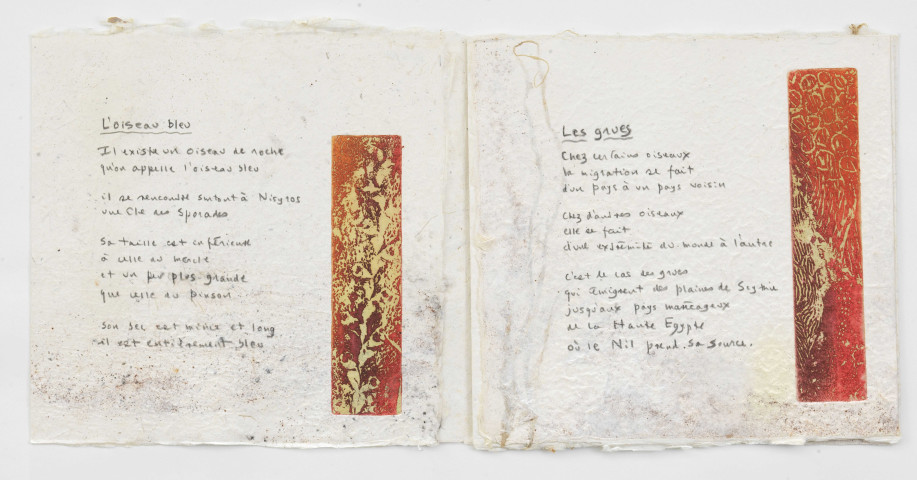 L'oiseau bleu
Il existe un oiseau de roche
qu'on appelle l'oiseau bleu
il se rencontre surtout à Nisyros
une Cle des Sporades
Sa taille est inférieure
à celle du merle
et un peu plus grande
que celle du pinson
Son bec est mince et long
il est entièrement bleu
Les grues
Chez certains oiseaux
la migration se fait
d'un pays à un pays voisin
Chez d'autres oiseaux
elle se fait
d'une extrémité du monde à l'autre
c'est le cas des grues
qui émigrent des plaines de Scythie
jusqu'aux pays marécageux
de la Haute Egypte
où le Nil prend sa source.